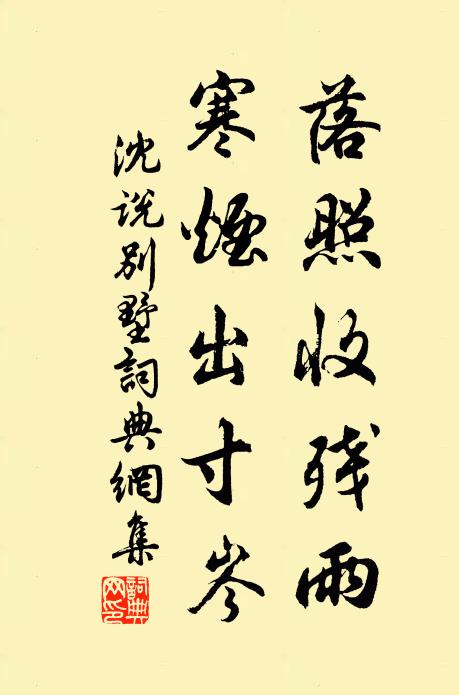 落照收残雨
寒煙出寸岑
沈说别墅詞典網集
詞典网印